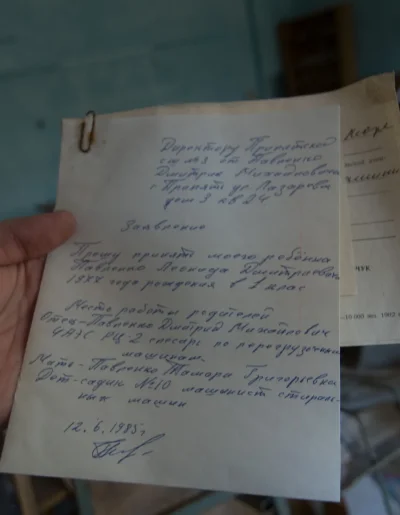 Директору Припятской
сш №3 от Павленко
Дмитрия Михайловича
г Припять ул. Лазарева
дом 3 кв 24
Заявление
Прошу принять моего ребёнка
Павленко Леонида Дмитриевича
года рождения в 1 клас
Место работы родителей
Отец-Павленко Дмитрий Михайлович
ЧАЭС РЦ-2 слесарь по перегрузочным
машинам.
Мать-Павленко Тамара Григорьевна
Дет-садик №10 машинист стираль-
ных машин
12.6.1985г